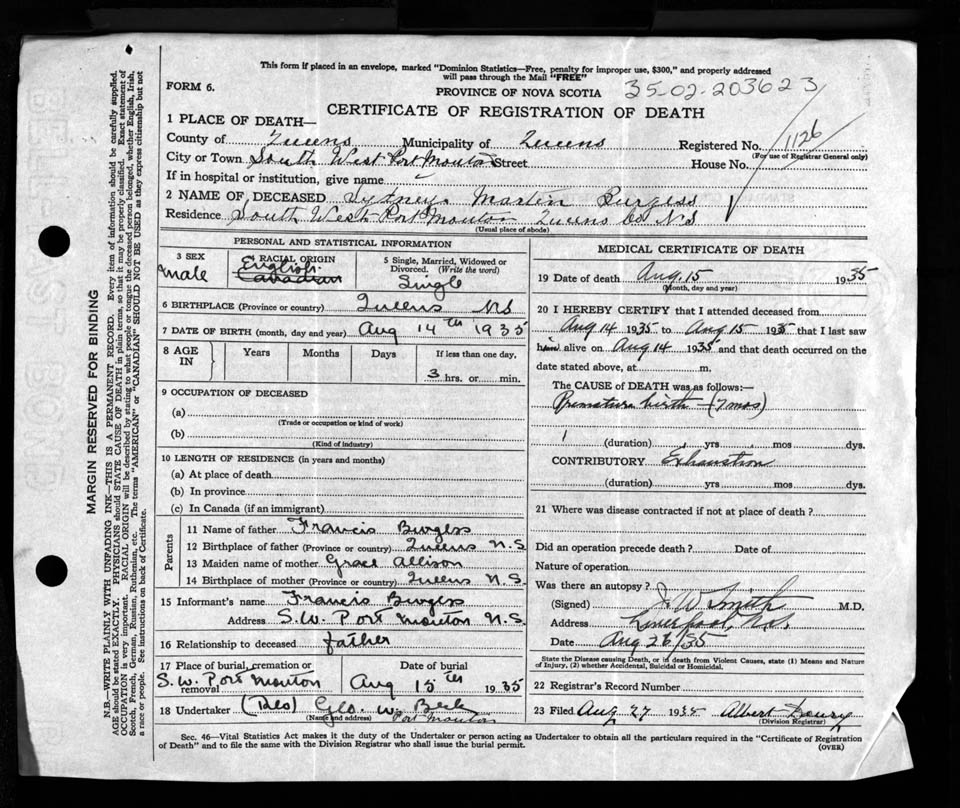 This form if placed in an envelope, marked "Dominion Statistics—Free, penalty for improper use, $300," and properly addressed
will pass through the Mail "FREE"
FORM 6.
PROVINCE OF NOVA SCOTIA 35-02-203623
CERTIFICATE OF REGISTRATION OF DEATH
1 PLACE OF DEATH—
County of Queens Municipality of Queens Registered No. 1126
(For use of Registrar General only)
City or Town South West Port Mouton Street House No.
If in hospital or institution, give name
2 NAME OF DECEASED Sydney Martin Burgess
Residence South West Port Mouton Queens Co NS
(Usual place of abode)
PERSONAL AND STATISTICAL INFORMATION
3 SEX
male
4 RACIAL ORIGIN
English
Canadian
5 Single, Married, Widowed or
Divorced. (Write the word)
Single
6 BIRTHPLACE (Province or country) Queens NS
7 DATE OF BIRTH (month, day and year) Aug 14th 1935
8 AGE IN Years Months Days If less than one day,
3 hrs. or min.
9 OCCUPATION OF DECEASED
(a)
(Trade or occupation or kind of work)
(b)
(Kind of industry)
10 LENGTH OF RESIDENCE (in years and months)
(a) At place of death
(b) In province
(c) In Canada (if an immigrant)
Parents
11 Name of father Francis Burgess
12 Birthplace of father (Province or country) Queens N.S.
13 Maiden name of mother Grace Allison
14 Birthplace of mother (Province or country) Queens N.S.
15 Informant's name Francis Burgess
Address S.W. Port Mouton N.S.
16 Relationship to deceased father
17 Place of burial, cremation or removal Date of burial
S.W. Port Mouton Aug 15th 1935
18 Undertaker Geo. W.
(Name and address) Port Mouton
MEDICAL CERTIFICATE OF DEATH
19 Date of death Aug. 15 1935
(Month, day and year)
20 I HEREBY CERTIFY that I attended deceased from
Aug 14 1935 to Aug 15 1935 that I last saw
him alive on Aug 14 1935 and that death occurred on the
date stated above, at m.
The CAUSE of DEATH was as follows:—
Premature birth—(7 mos)
1 (duration) yrs mos dys.
CONTRIBUTORY Exhaustion
(duration) yrs mos dys.
21 Where was disease contracted if not at place of death?
Did an operation precede death? Date of
Nature of operation
Was there an autopsy?
(Signed) J W Smith M.D.
Address Liverpool, N.S.
Date Aug 26/35
State the Disease causing Death, or in death from Violent Causes, state (1) Means and Nature
of Injury, (2) whether Accidental, Suicidal or Homicidal.
22 Registrar's Record Number
23 Filed Aug 27 1935 Albert
(Division Registrar)
Sec. 46—Vital Statistics Act makes it the duty of the Undertaker or person acting as Undertaker to obtain all the particulars required in the "Certificate of Registration
of Death" and to file the same with the Division Registrar who shall issue the burial permit. (OVER)
MARGIN RESERVED FOR BINDING
N.B.—WRITE PLAINLY WITH UNFADING INK—THIS IS A PERMANENT RECORD. Every item of information should be carefully supplied.
AGE should be stated EXACTLY. PHYSICIANS should STATE CAUSE OF DEATH in plain terms, so that it may be properly classified. Exact statement of
OCCUPATION is very important. RACIAL ORIGIN will be described by stating to what people or tongue the deceased person belonged, whether English, Irish,
Scotch, French, German, Russian, Ruthenian, etc. The terms "AMERICAN" or "CANADIAN" SHOULD NOT BE USED as they express citizenship but not
a race or people. See instructions on back of Certificate.